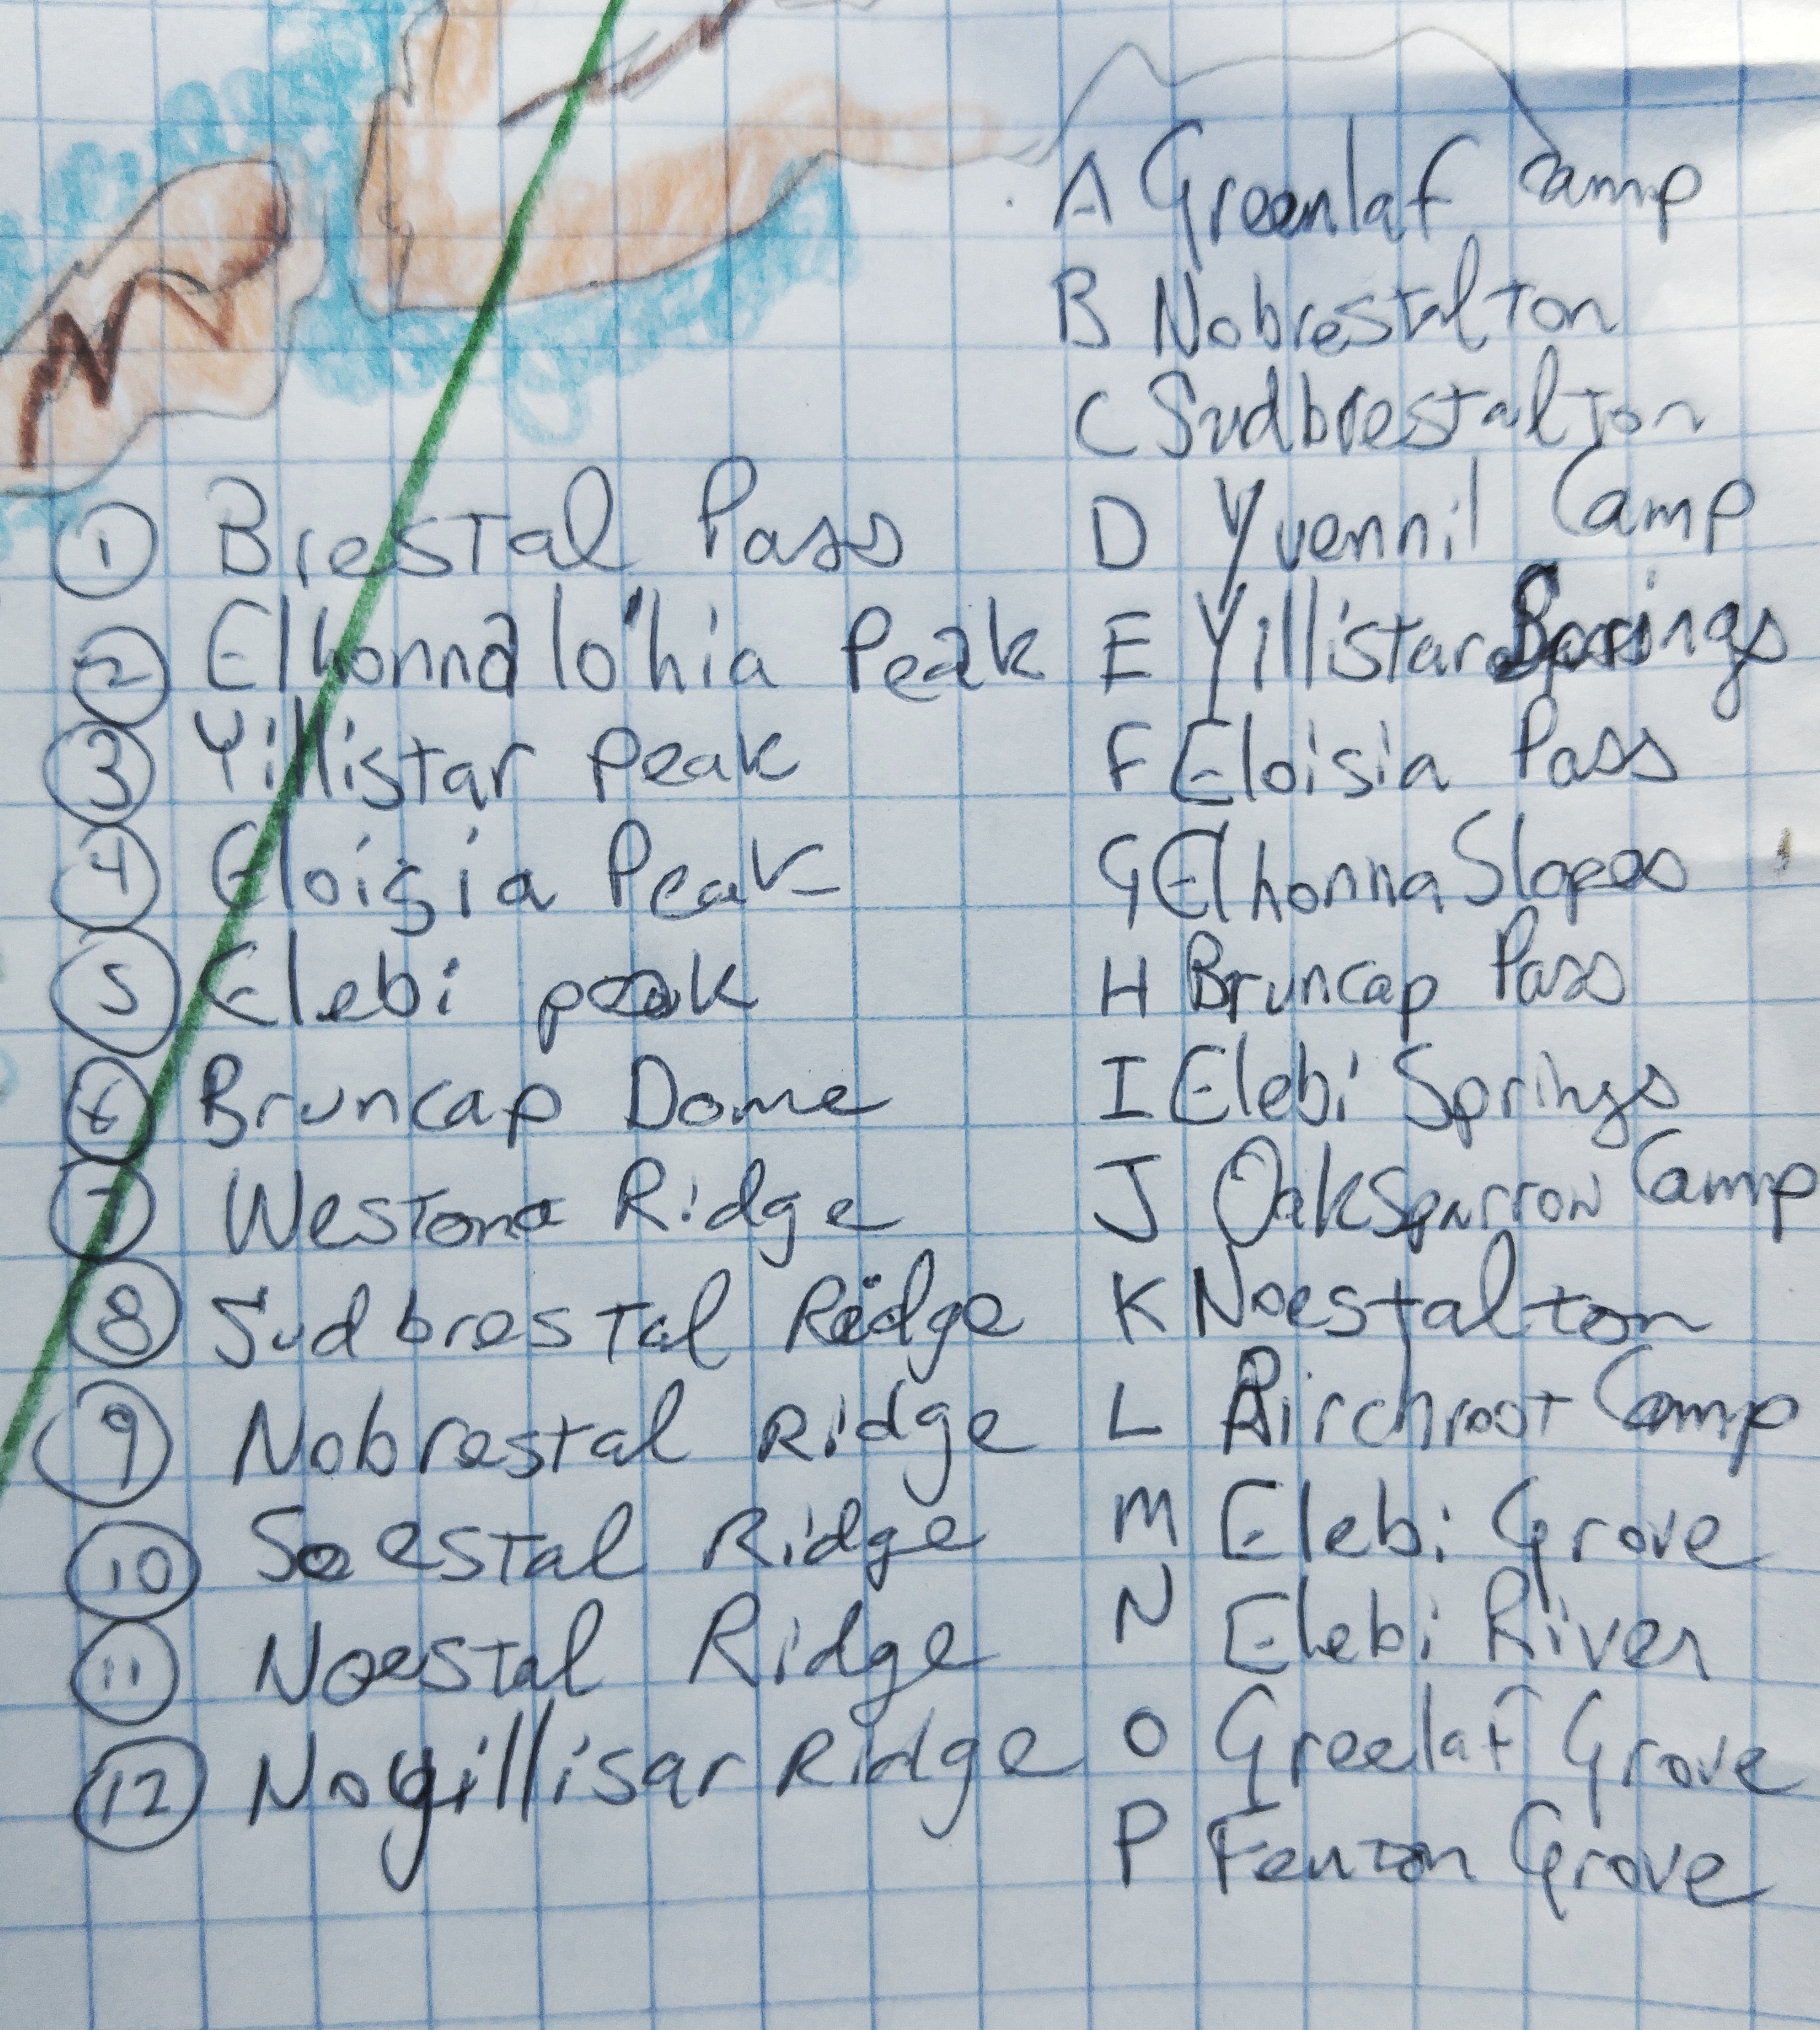 1 Brestal Pass
2 Elhonnalo'hia Peak
3 Yillistar Peak
4 Eloisia Peak
5 Elebi peak
6 Bruncap Dome
7 Westona Ridge
8 Sudbrestal Ridge
9 Nobrestal Ridge
10 Soestal Ridge
11 Noestal Ridge
12 Noyillisar Ridge
A Greenlaf Camp
B Nobrestalton
C Sudbrestalton
D Yvennil Camp
E Yillistar Springs
F Eloisia Pass
G Elhonna Slopes
H Bruncap Pass
I Elebi Springs
J Oaksparrow Camp
K Noestalton
L Birchroot Camp
M Elebi Grove
N Elebi River
O Greelaf Grove
P Fenton Grove